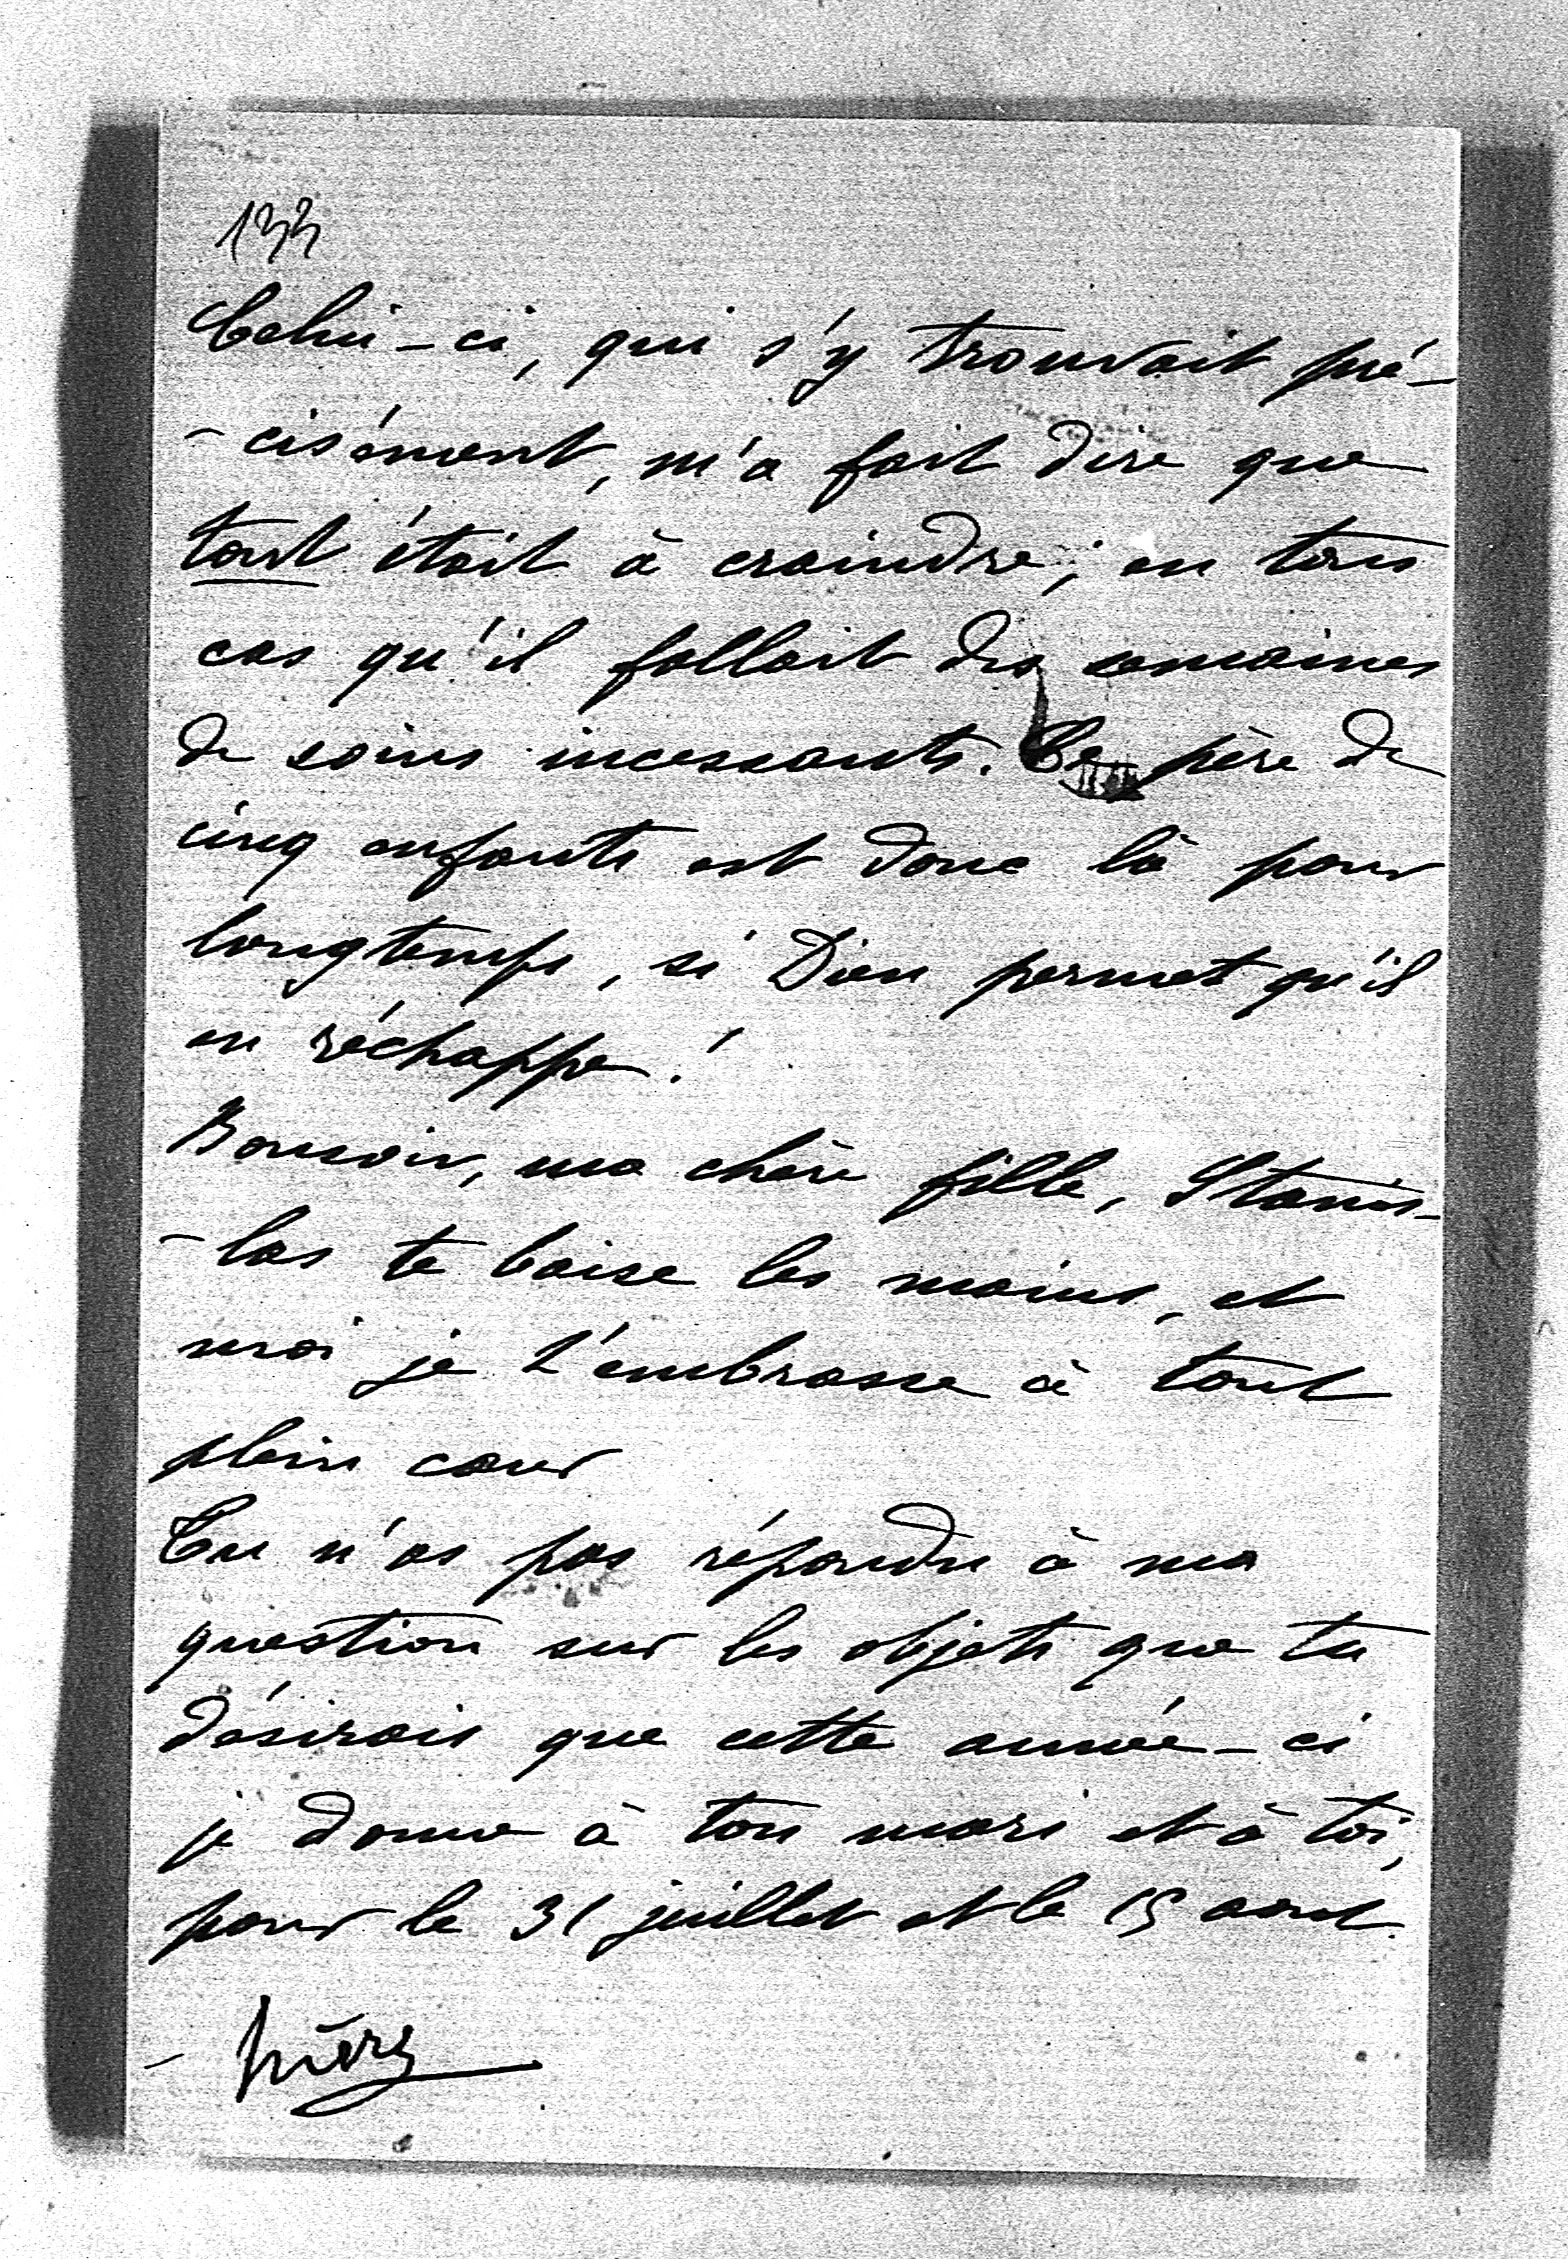 133
Celui-ci, qui s'y trouvait pré-
-cisément, m'a fait dire que
tout était à craindre; en tous
cas qu'il fallait des semaines
de soins incessants. Ce père de
cinq enfants est donc là pour
longtemps, si Dieu permet qu'il
en réchappe!
Bonsoir, ma chère fille, Stanis-
-las te baise les mains, et
moi je t'embrasse à tout
plein cœur
Tu n'as pas répondu à ma
question sur les objets que tu
désirais que cette année-ci
je donne à ton mari et à toi,
pour le 31 juillet et le 15 aout.
- Mère